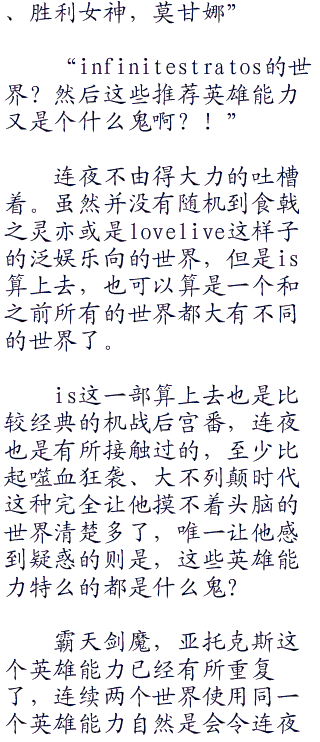 、胜利女神，莫甘娜”
“infinitestratos的世
界？然后这些推荐英雄能力
又是个什么鬼啊？！”
连夜不由得大力的吐槽
着。虽然并没有随机到食戟
之灵亦或是lovelive这样子
的泛娱乐向的世界，但是is
算上去，也可以算是一个和
之前所有的世界都大有不同
的世界了。
is这一部算上去也是比
较经典的机战后宫番，连夜
也是有所接触过的，至少比
起噬血狂袭、大不列颠时代
这种完全让他摸不着头脑的
世界清楚多了，唯一让他感
到疑惑的则是，这些英雄能
力特么的都是什么鬼？
霸天剑魔，亚托克斯这
个英雄能力已经有所重复
了，连续两个世界使用同一
个英雄能力自然是会令连夜